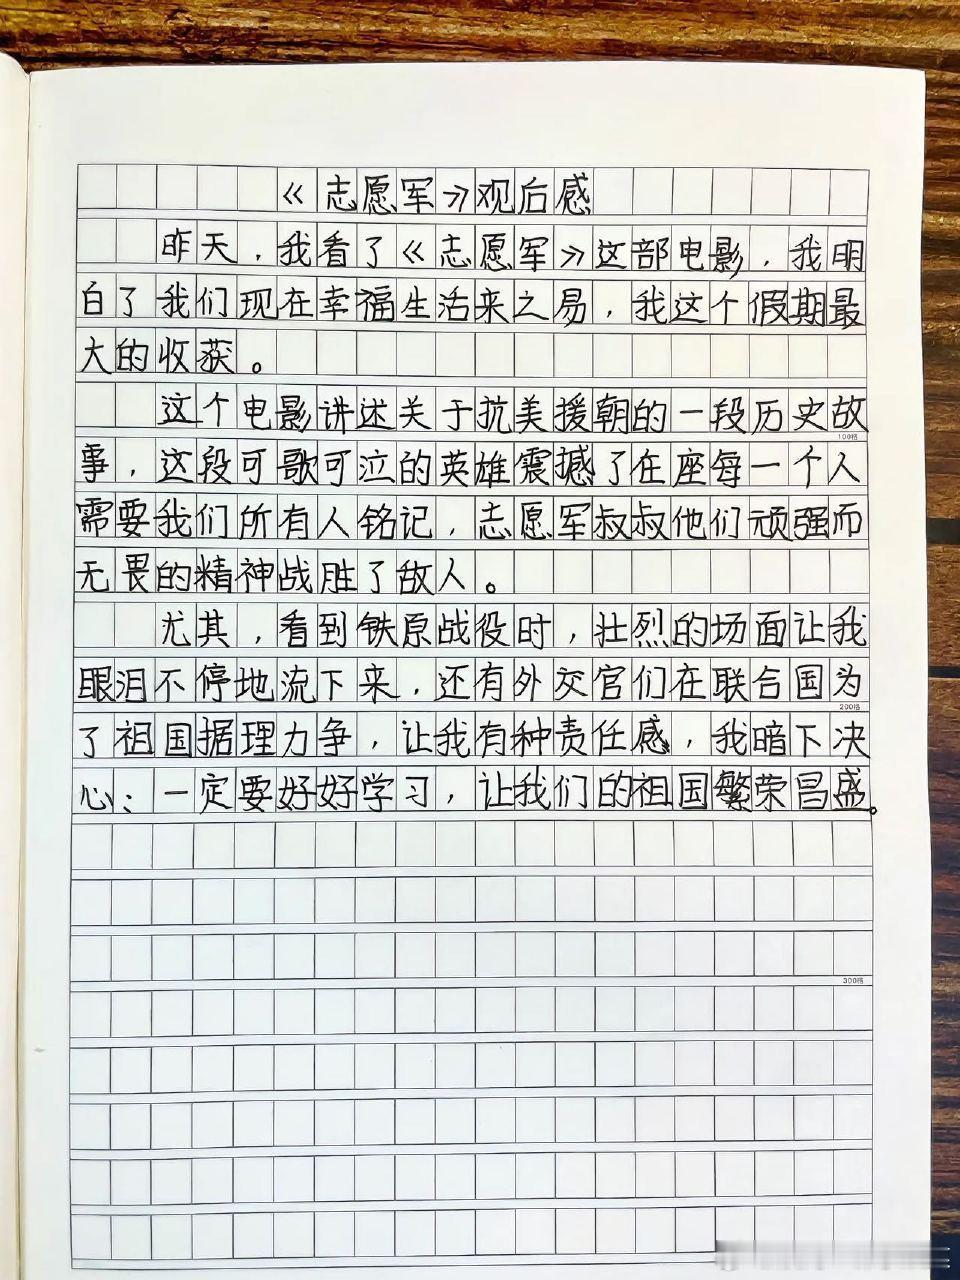 《志愿军》观后感
昨天，我看了《志愿军》这部电影，我明
白了我们现在幸福生活来之易，我这个假期最
大的收获。
这个电影讲述关于抗美援朝的一段历史故
100格
事，这段可歌可泣的英雄震撼了在座每一个人
需要我们所有人铭记，志愿军叔叔他们顽强而
无畏的精神战胜了敌人。
尤其，看到铁原战役时，壮烈的场面让我
眼泪不停地流下来，还有外交官们在联合国为
200格
了祖国据理力争，让我有种责任感，我暗下决
心：一定要好好学习，让我们的祖国繁荣昌盛。
300格